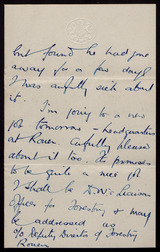 but found he had gone
away for a few days
I was awfully sick about
it.
I'm going to a new
job tomorrow - headquarters
at Rouen. Awfully pleased
about it too. It promises
to be quite a nice job
I shall be D.W's Liaison
Officer for Forestry & may
be addressed as
c/o Deputy Director of Forestry
Rouen